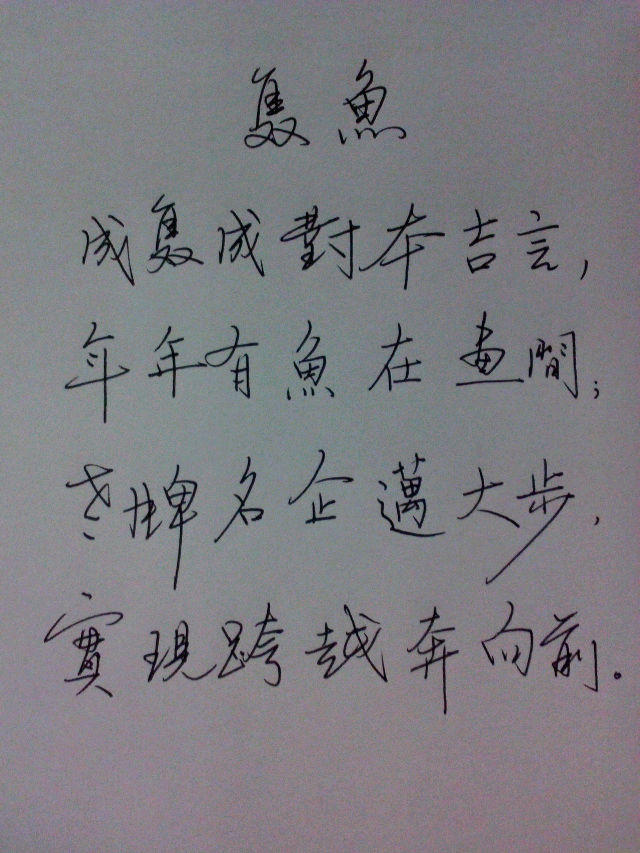 雙魚
成雙成對本吉言，
年年有魚在畫間；
老牌名企邁大步，
實現跨越奔向前。